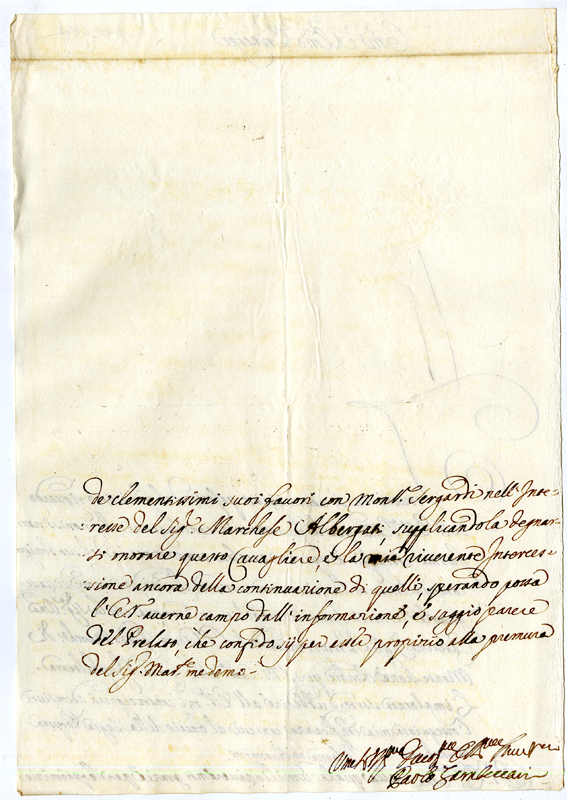 de clementissimi suoi favori con Mons.r Sergardi nell'Inte-
resse del Sig.r Marchese Albergati supplicandola degnar-
si onorare questo Cavagliere, e la mia riverente Interces-
sione ancora della continuazione di quelli, sperando possa
l'E.V. averne campo dall'informazione, e saggio parere
del Prelato, che confido sij per esser propizio alla premura
del Sig.r Mar.e medemo.
Paolo Zambeccari